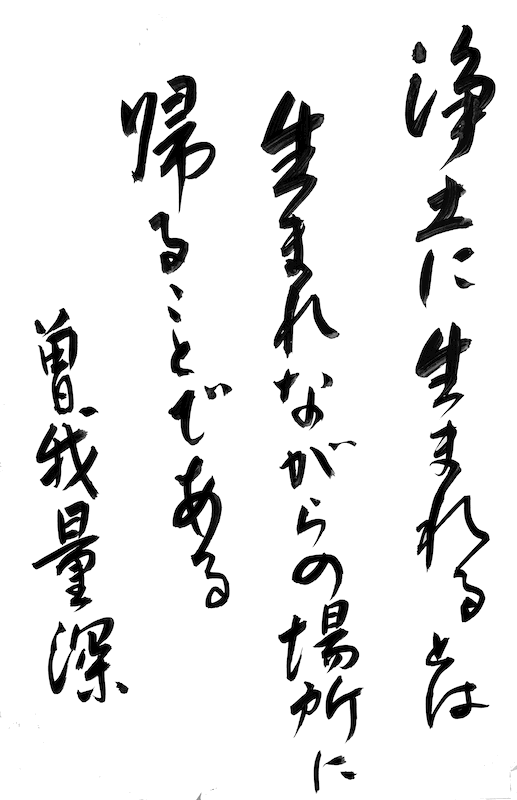 浄土に生まれるとは
生まれながらの場所に
帰ることである
曽我量深